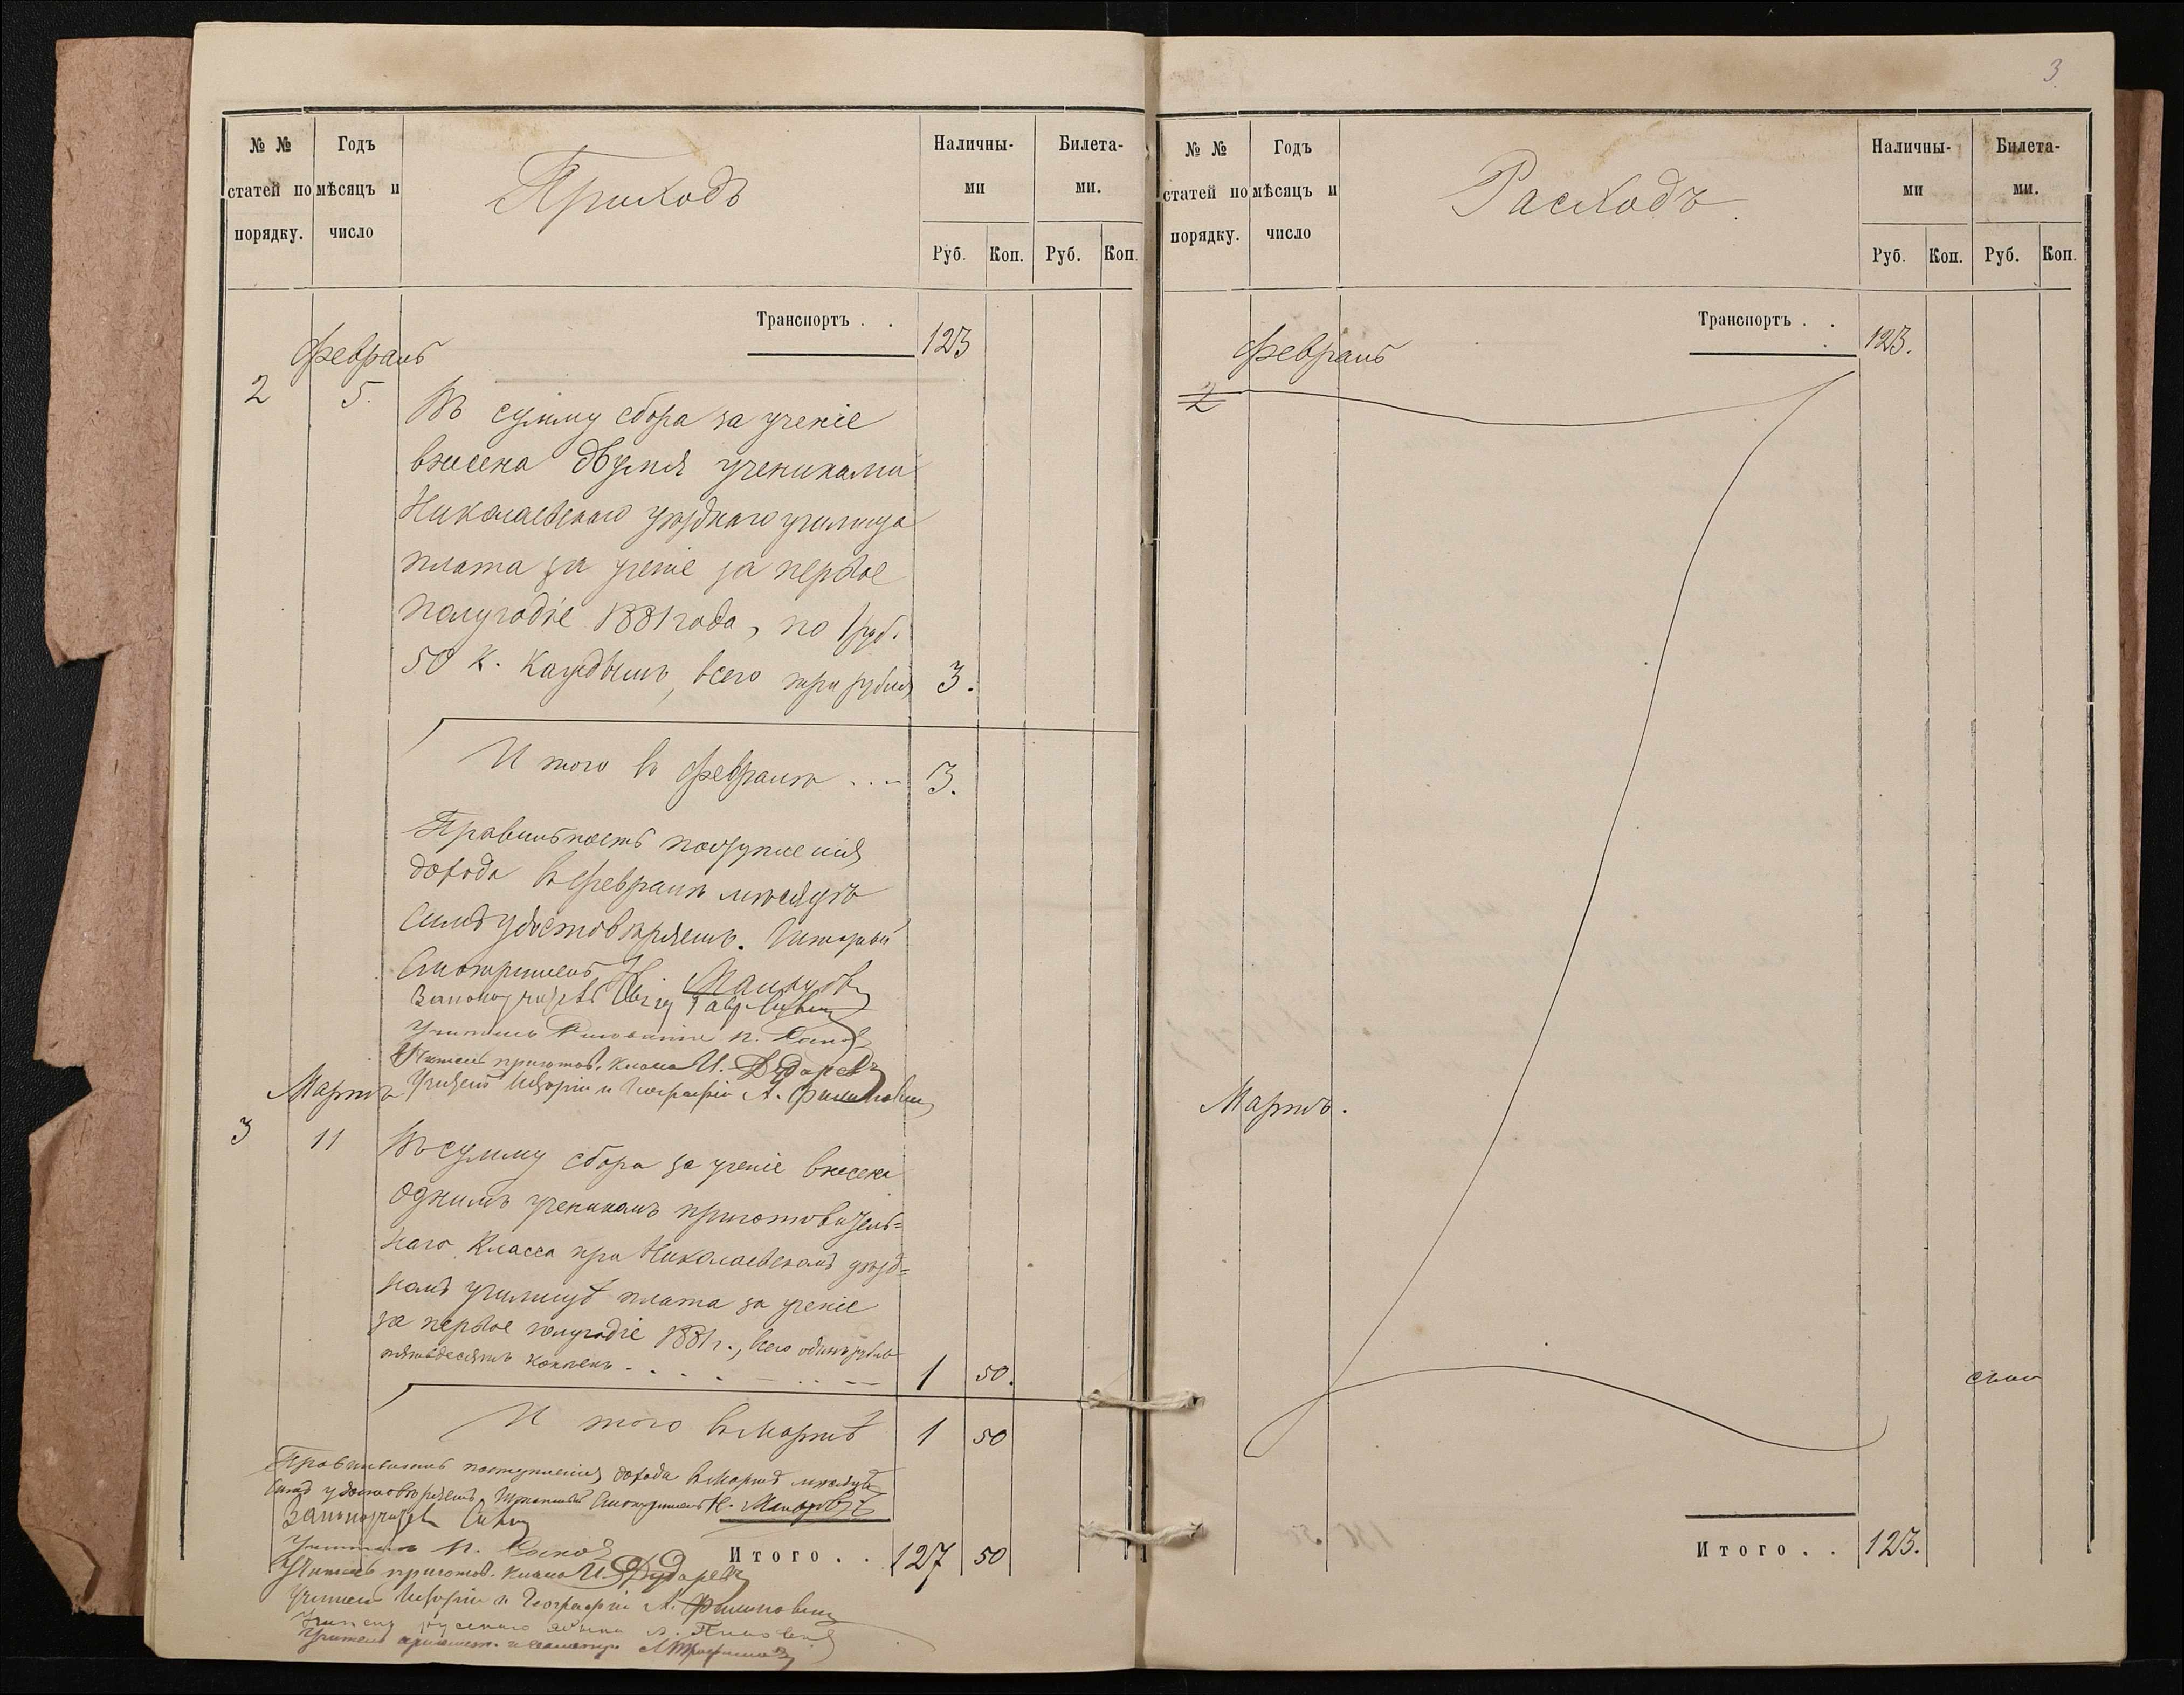 № №
статей по
порядку.
Годъ
мѣсяцъ и
число
Приходъ
Наличны-
ми
Билета-
ми.
Руб. Коп. Руб. Коп.
Транспортъ . . 123
Февраль
2 5. Въ сумму сбора за ученіе
внесена двумя учениками
Николаевскаго уѣзднаго училища
плата за ученіе за первое
полугодіе 1881 года, по 1 руб.
50 к. каждымъ, всего три рубля 3.
Итого въ Февралѣ . . . 3.
Правильность поступленія
дохода въ Февралѣ мѣсяцѣ
симъ удостовѣряемъ. Штатный
Смотритель Н.
Законоучитель Свящ.
Учитель Рисованія П.
Учитель приготов. класса И. Дударевъ
Учитель Исторіи и Географіи А. Филиповичъ
Мартъ
3 11 Въ сумму сбора за ученіе внесена
однимъ ученикомъ приготовитель=
наго класса при Николаевскомъ уѣзд=
номъ училищѣ плата за ученіе
за первое полугодіе 1881 г., всего одинъ рубль
пятьдесятъ копѣекъ . . . . 1 50.
Итого въ Мартѣ 1 50
Правильность поступленія дохода въ Мартѣ мѣсяцѣ
симъ удостовѣряемъ. Штатный Смотритель Н.
Законоучитель
Учитель П.
Учитель приготов. класса И. Дударевъ
Учитель Исторіи и Географіи А. Филиповичъ
Учитель русскаго языка
Учитель ариѳмет. и геометріи
Итого . . 127 50
3
№ №
статей по
порядку.
Годъ
мѣсяцъ и
число
Расходъ.
Наличны-
ми
Билета-
ми.
Руб. Коп. Руб. Коп.
Транспортъ . . 123.
Февраль
2
Мартъ.
Итого . . 123.